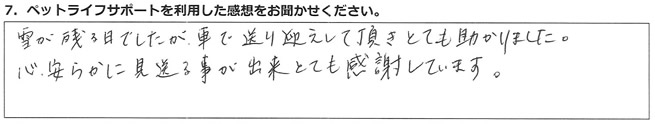 7. ペットライフサポートを利用した感想をお聞かせください。
雪が残る日でしたが、車で送り迎えして頂きとても助かりました。
心安らかに見送る事が出来とても感謝しています。